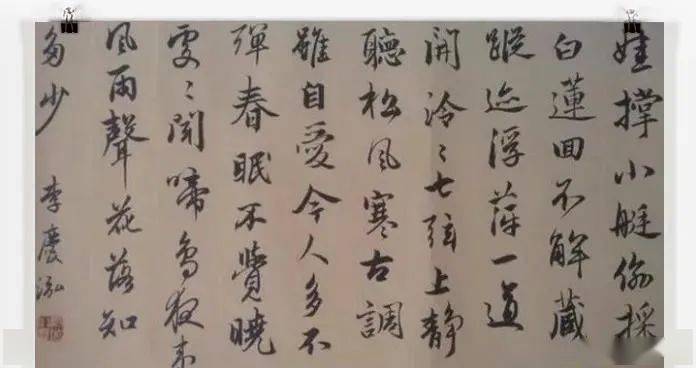 娃撐小艇偷採
白蓮回不解藏
蹤迹浮萍一道
開泠〻七弦上静
聽松風寒古調
雖自愛今人多不
彈春眠不覺曉
處〻聞啼鳥夜来
風雨聲花落知
多少
李慶泓